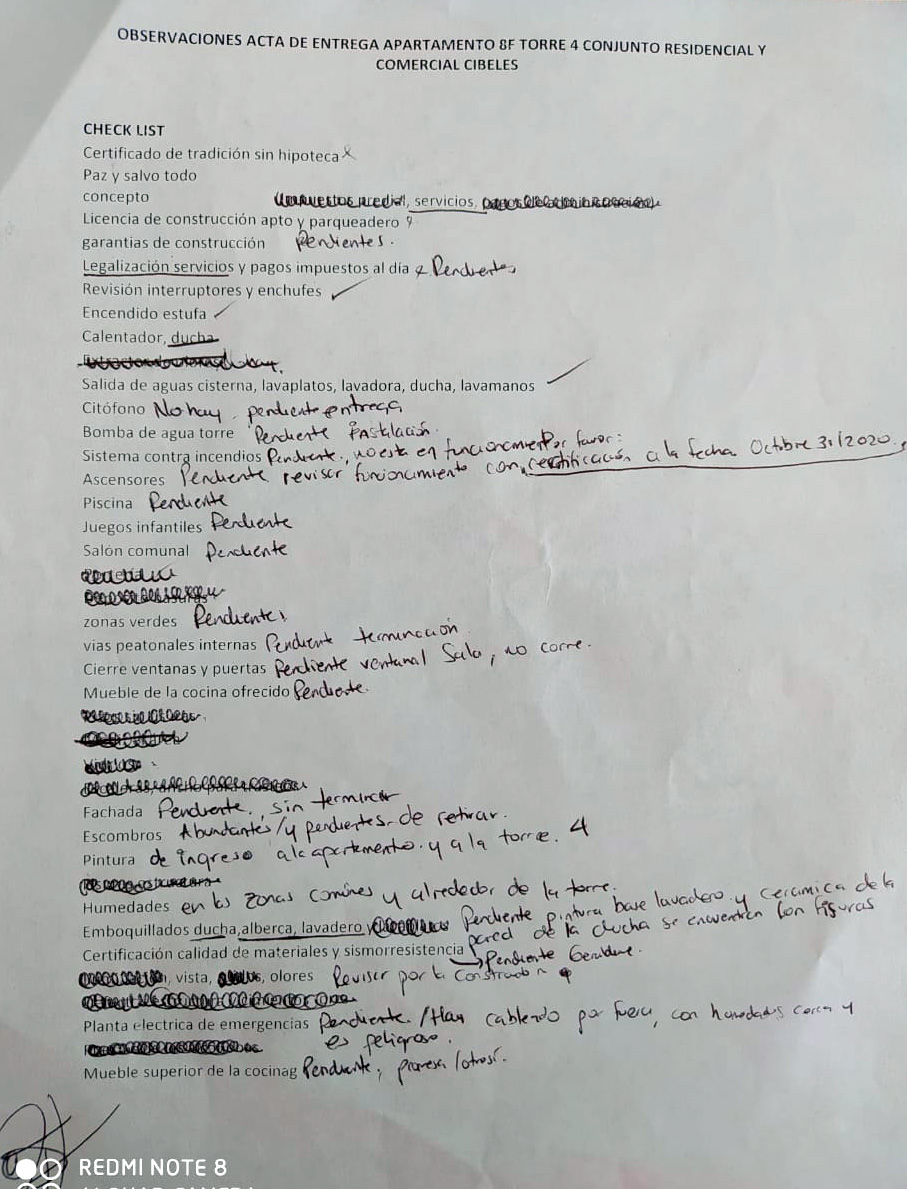 OBSERVACIONES ACTA DE ENTREGA APARTAMENTO 8F TORRE 4 CONJUNTO RESIDENCIAL Y
COMERCIAL CIBELES
CHECK LIST
Certificado de tradición sin hipoteca
Paz y salvo todo
concepto servicios,
Licencia de construcción apto y parqueadero
garantias de construcción Pendientes.
Legalización servicios y pagos impuestos al día Pendientes
Revisión interruptores y enchufes
Encendido estufa
Calentador, ducha
Salida de aguas cisterna, lavaplatos, lavadora, ducha, lavamanos
Citófono No hay, pendiente entrega
Bomba de agua torre Pendiente
Sistema contra incendios Pendiente, no esta en Por favor:
Ascensores Pendiente revisar funcionamiento con certificación a la fecha Octubre 31/2020.
Piscina Pendiente
Juegos infantiles Pendiente
Salón comunal Pendiente
zonas verdes Pendientes
vias peatonales internas Pendiente terminación
Cierre ventanas y puertas Pendiente ventanal Sala, no corre.
Mueble de la cocina ofrecido Pendiente.
Fachada Pendiente, sin terminar
Escombros Abundantes/y pendientes de retirar.
Pintura de ingreso al apartamento y a la torre. 4
Humedades en las zonas comunes y alrededor de la torre.
Emboquillados ducha, alberca, lavadero y Pendiente pintura base lavadero y ceramica de la
pared de la ducha se encuentran con figuras
Certificación calidad de materiales y sismorresistencia Pendiente
, vista, olores Revisar por la
Planta electrica de emergencias Pendiente /Hay por fuera, con humedades cerca y
es peligroso.
Mueble superior de la cocinag Pendiente, promesa /otrosí.
REDMI NOTE 8